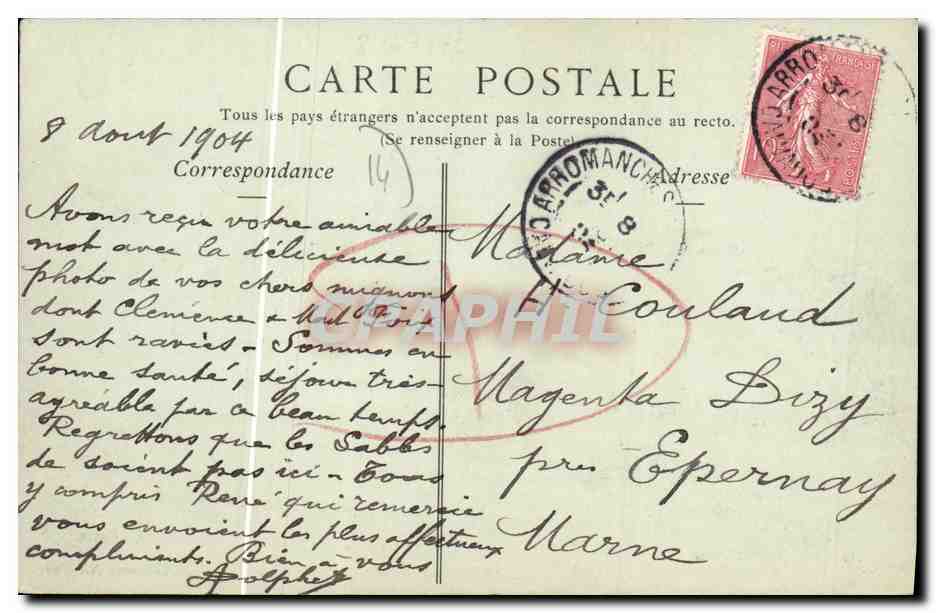 CARTE POSTALE
Tous les pays étrangers n'acceptent pas la correspondance au recto.
(Se renseigner à la Poste)
Correspondance
Adresse
8 Aout 1904
14
Avons reçu votre aimable
mot avec la délicieuse
photo de vos chers mignons
dont Clémence &
sont ravies - Sommes en
bonne santé, séjour très-
agréable par ce beau temps.
Regrettons que les Sables
de soient pas ici - Tous
y compris René qui remercie
vous envoient les plus affectueux
compliments. Bien à vous
Adolphe
Madame
Couland
Magenta Dizy
près Epernay
Marne
ARROMANCHES
8
ARRO
8
FRANÇAISE
POSTES
10
CPAPHIL